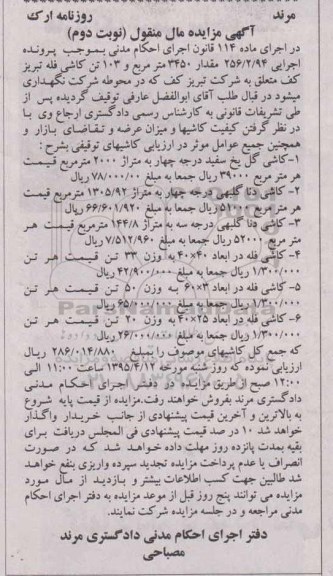 مرند روزنامه ارک
آگهی مزایده مال منقول (نوبت دوم)
در اجرای ماده ۱۱۴ قانون اجرای احکام مدنی بموجب پرونده
اجرایی ۲۵۶/۲/۹۴ مقدار ۳۴۵۰ متر مربع و ۱۰۳ تن کاشی فله تبریز
کف متعلق به شرکت تبریز کف که در محوطه شرکت نگهداری
میشود در قبال طلب آقای ابوالفضل عارفی توقیف گردیده پس از
طی تشریفات قانونی به کارشناس رسمی دادگستری ارجاع وی با
در نظر گرفتن کیفیت کاشیها و میزان عرضه و تقاضای بازار و
همچنین جمیع عوامل موثر در ارزیابی کاشیهای توقیفی بشرح :
۱-کاشی گل یخ سفید درجه چهار به متراژ ۲۰۰۰ مترمربع قیمت
هر متر مربع ۳۹۰۰۰ ریال جمعا به مبلغ ۷۸/۰۰۰/۰۰۰ ریال
۲- کاشی دنا گلبهی درجه چهار به متراژ ۱۳۰۵/۹۲ مترمربع قیمت
هر متر مربع ۵۱۰۰۰ ریال جمعا به مبلغ ۶۶/۶۰۱/۹۲۰ ریال
۳-کاشی دنا گلبهی درجه سه به متراژ ۱۴۴/۸ مترمربع قیمت هر
متر مربع ۵۲۰۰۰ ریال جمعا به مبلغ ۷/۵۱۲/۹۶۰ ریال
۴- کاشی فله در ابعاد ۴۰×۴۰ به وزن ۳۳ تن قیمت هر تن
۱/۳۰۰/۰۰۰ ریال جمعا به مبلغ ۴۲/۹۰۰/۰۰۰ ریال
۵- کاشی فله در ابعاد ۳×۶۰ به وزن ۵۰ تن قیمت هر تن
۱/۳۰۰/۰۰۰ ریال جمعا به مبلغ ۶۵/۰۰۰/۰۰۰ ریال
۶- کاشی فله در ابعاد ۲۵×۴۰ به وزن ۲۰ تن قیمت هر تن
۱/۳۰۰/۰۰۰ ریال جمعا به مبلغ ۲۶/۰۰۰/۰۰۰ ریال
که جمع کل کاشیهای موصوف را بمبلغ ۲۸۶/۰۱۴/۸۸۰ ریال
ارزیابی نموده که روز شنبه مورخه ۱۳۹۵/۴/۱۲ ساعت ۱۱:۰۰ الی
۱۲:۰۰ صبح از طریق مزایده در دفتر اجرای احکام مدنی
دادگستری مرند بفروش خواهند رفت.مزایده از قیمت پایه شروع
به بالاترین و آخرین قیمت پیشنهادی از جانب خریدار واگذار
خواهد شد ۱۰ در صد قیمت پیشنهادی فی المجلس دریافت برای
بقیه بمدت پانزده روز مهلت داده خواهد شد که در صورت
انصراف یا عدم پرداخت مزایده تجدید سپرده واریزی بنفع خواهد
شد طالبین جهت کسب اطلاعات بیشتر و بازدید از مال مورد
مزایده می توانند پنج روز قبل از موعد مزایده به دفتر اجرای احکام
مدنی مراجعه و در جلسه مزایده شرکت نمایند.
دفتر اجرای احکام مدنی دادگستری مرند
مصباحی